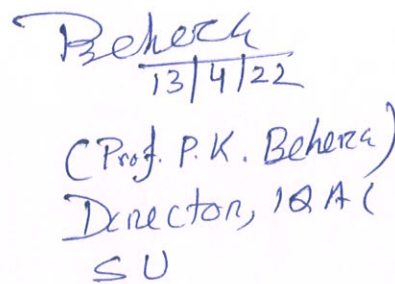 Behera
13/4/22
(Prof. P. K. Behera)
Director, IQAC
SU